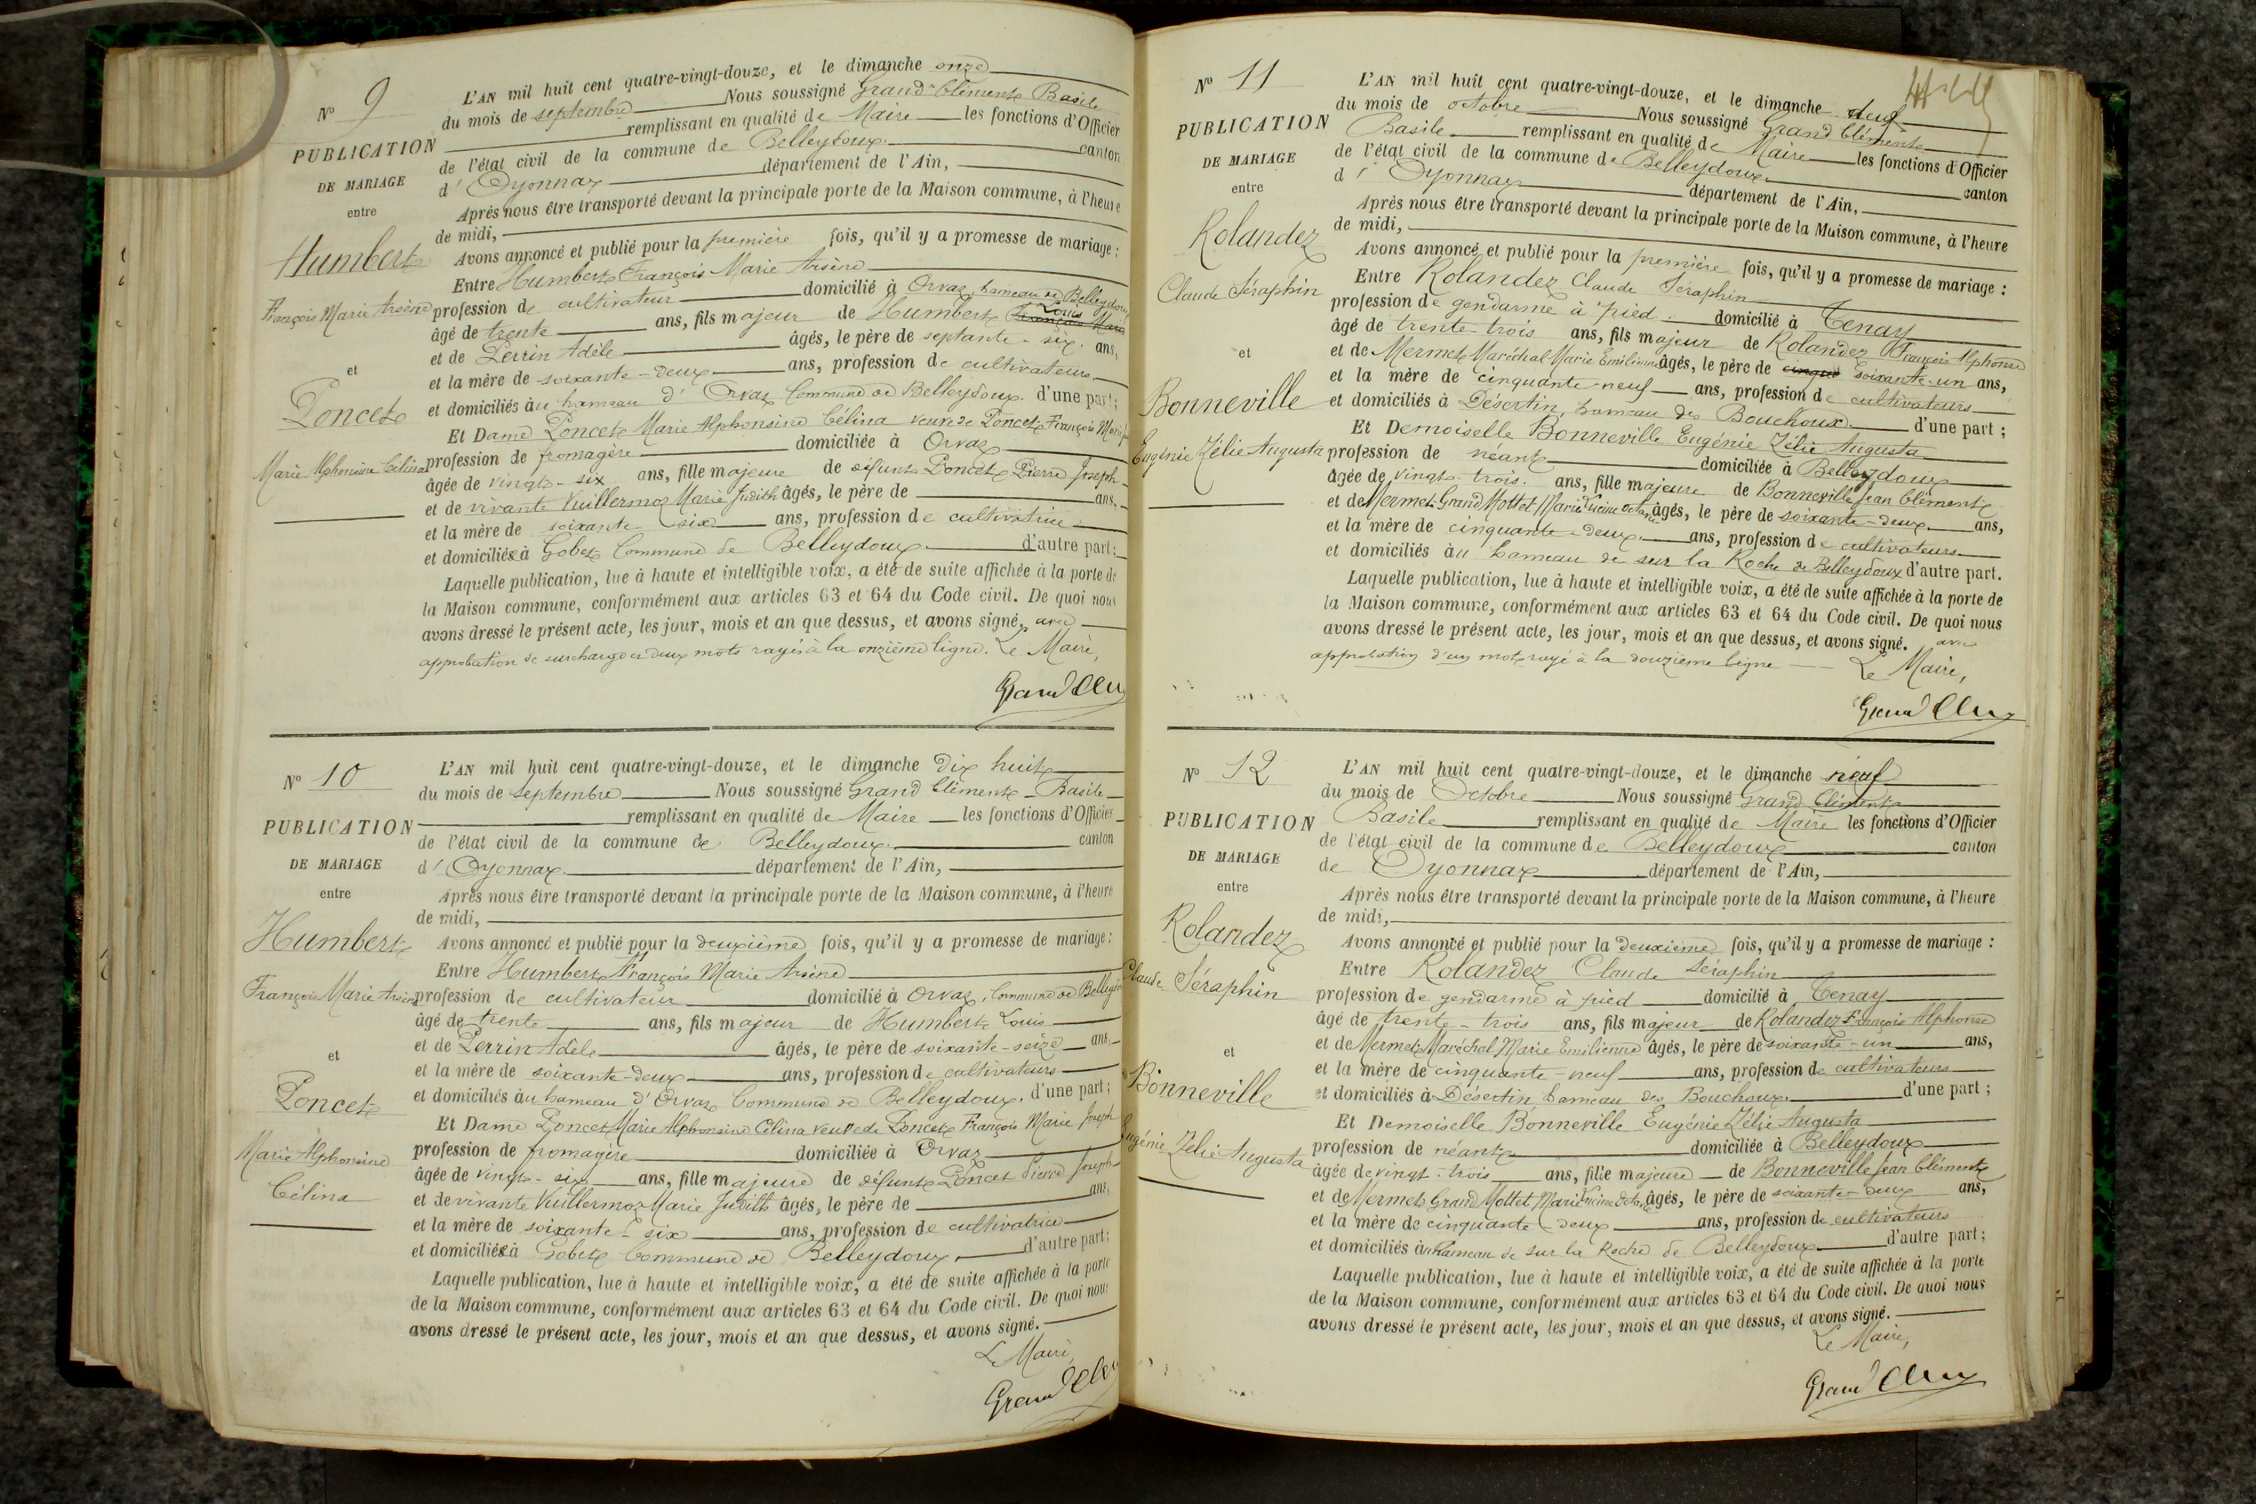 N° 9
PUBLICATION
DE MARIAGE
entre
Humbert
François Marie Arsène
et
Poncet
Marie Alphonsine Célina
L'AN mil huit cent quatre-vingt-douze, et le dimanche onze
du mois de septembre Nous soussigné Grand Clément Basile
remplissant en qualité de Maire les fonctions d'Officier
de l'état civil de la commune de Belleydoux canton
d'Oyonnax département de l'Ain,
Après nous être transporté devant la principale porte de la Maison commune, à l'heure
de midi,
Avons annoncé et publié pour la première fois, qu'il y a promesse de mariage :
Entre Humbert François Marie Arsène
profession de cultivateur domicilié à Orvaz, hameau de Belleydoux
âgé de trente ans, fils majeur de Humbert François Marie Louis
et de Perrin Adèle âgés, le père de septante-six ans,
et la mère de soixante-deux ans, profession de cultivateurs
et domiciliés au hameau d'Orvaz Commune de Belleydoux d'une part;
Et Dame Poncet Marie Alphonsine Célina veuve de Poncet François Marie
profession de fromagère domiciliée à Orvaz
âgée de vingt-six ans, fille majeure de défunt Poncet Pierre Joseph
et de vivante Vuillermoz Marie Judith âgés, le père de ans,
et la mère de soixante six ans, profession de cultivatrice
et domiciliés à Gobet Commune de Belleydoux d'autre part;
Laquelle publication, lue à haute et intelligible voix, a été de suite affichée à la porte de
la Maison commune, conformément aux articles 63 et 64 du Code civil. De quoi nous
avons dressé le présent acte, les jour, mois et an que dessus, et avons signé, avec
approbation de surcharge et deux mots rayés à la onzième ligne. Le Maire,
Grand Clém
N° 10
PUBLICATION
DE MARIAGE
entre
Humbert
François Marie Arsène
et
Poncet
Marie Alphonsine
Célina
L'AN mil huit cent quatre-vingt-douze, et le dimanche dix huit
du mois de Septembre Nous soussigné Grand Clément Basile
remplissant en qualité de Maire les fonctions d'Officier
de l'état civil de la commune de Belleydoux canton
d'Oyonnax département de l'Ain,
Après nous être transporté devant la principale porte de la Maison commune, à l'heure
de midi,
Avons annoncé et publié pour la deuxième fois, qu'il y a promesse de mariage :
Entre Humbert François Marie Arsène
profession de cultivateur domicilié à Orvaz, Commune de Belleydoux
âgé de trente ans, fils majeur de Humbert Louis
et de Perrin Adèle âgés, le père de soixante-seize ans
et la mère de soixante-deux ans, profession de cultivateurs
et domiciliés au hameau d'Orvaz Commune de Belleydoux, d'une part;
Et Dame Poncet Marie Alphonsine Célina veuve de Poncet François Marie Joseph
profession de fromagère domiciliée à Orvaz
âgée de vingt-six ans, fille majeure de défunt Poncet Pierre Joseph
et de vivante Vuillermoz Marie Judith âgés, le père de ans,
et la mère de soixante-six ans, profession de cultivatrice
et domiciliés à Gobet Commune de Belleydoux, d'autre part;
Laquelle publication, lue à haute et intelligible voix, a été de suite affichée à la porte
de la Maison commune, conformément aux articles 63 et 64 du Code civil. De quoi nous
avons dressé le présent acte, les jour, mois et an que dessus, et avons signé.
Le Maire,
Grand Clém
N° 11
PUBLICATION
DE MARIAGE
entre
Rolandez
Claude Séraphin
et
Bonneville
Eugénie Zélie Augusta
L'AN mil huit cent quatre-vingt-douze, et le dimanche deux
du mois de octobre Nous soussigné Grand Clément
Basile remplissant en qualité de Maire les fonctions d'Officier
de l'état civil de la commune de Belleydoux canton
d'Oyonnax département de l'Ain,
Après nous être transporté devant la principale porte de la Maison commune, à l'heure
de midi,
Avons annoncé et publié pour la première fois, qu'il y a promesse de mariage :
Entre Rolandez Claude Séraphin
profession de gendarme à pied domicilié à Tenay
âgé de trente-trois ans, fils majeur de Rolandez François Alphonse
et de Mermet Maréchal Marie Emilienne âgés, le père de cinqu soixante-un ans,
et la mère de cinquante-neuf ans, profession de cultivateurs
et domiciliés à Désertin, hameau des Bouchoux d'une part ;
Et Demoiselle Bonneville Eugénie Zélie Augusta
profession de néant domiciliée à Belleydoux
âgée de vingt-trois ans, fille majeure de Bonneville Jean Clément
et de Mermet Grand Mottet Marie Lucine Octavie âgés, le père de soixante-deux ans,
et la mère de cinquante-deux ans, profession de cultivateurs
et domiciliés au hameau de sur la Roche de Belleydoux d'autre part.
Laquelle publication, lue à haute et intelligible voix, a été de suite affichée à la porte de
la Maison commune, conformément aux articles 63 et 64 du Code civil. De quoi nous
avons dressé le présent acte, les jour, mois et an que dessus, et avons signé. avec
approbation d'un mot rayé à la douzième ligne Le Maire,
Grand Clém
N° 12
PUBLICATION
DE MARIAGE
entre
Rolandez
Claude Séraphin
et
Bonneville
Eugénie Zélie Augusta
L'AN mil huit cent quatre-vingt-douze, et le dimanche neuf
du mois de Octobre Nous soussigné Grand Clément
Basile remplissant en qualité de Maire les fonctions d'Officier
de l'état civil de la commune de Belleydoux canton
de Oyonnax département de l'Ain,
Après nous être transporté devant la principale porte de la Maison commune, à l'heure
de midi,
Avons annoncé et publié pour la deuxième fois, qu'il y a promesse de mariage :
Entre Rolandez Claude Séraphin
profession de gendarme à pied domicilié à Tenay
âgé de trente-trois ans, fils majeur de Rolandez François Alphonse
et de Mermet Maréchal Marie Emilienne âgés, le père de soixante-un ans,
et la mère de cinquante-neuf ans, profession de cultivateurs
et domiciliés à Désertin hameau des Bouchoux d'une part ;
Et Demoiselle Bonneville Eugénie Zélie Augusta
profession de néant domiciliée à Belleydoux
âgée de vingt-trois ans, fille majeure de Bonneville Jean Clément
et de Mermet Grand Mottet Marie Lucine Octavie âgés, le père de soixante-deux ans,
et la mère de cinquante deux ans, profession de cultivateurs
et domiciliés à hameau de sur la Roche de Belleydoux d'autre part;
Laquelle publication, lue à haute et intelligible voix, a été de suite affichée à la porte
de la Maison commune, conformément aux articles 63 et 64 du Code civil. De quoi nous
avons dressé le présent acte, les jour, mois et an que dessus, et avons signé.
Le Maire,
Grand Clém